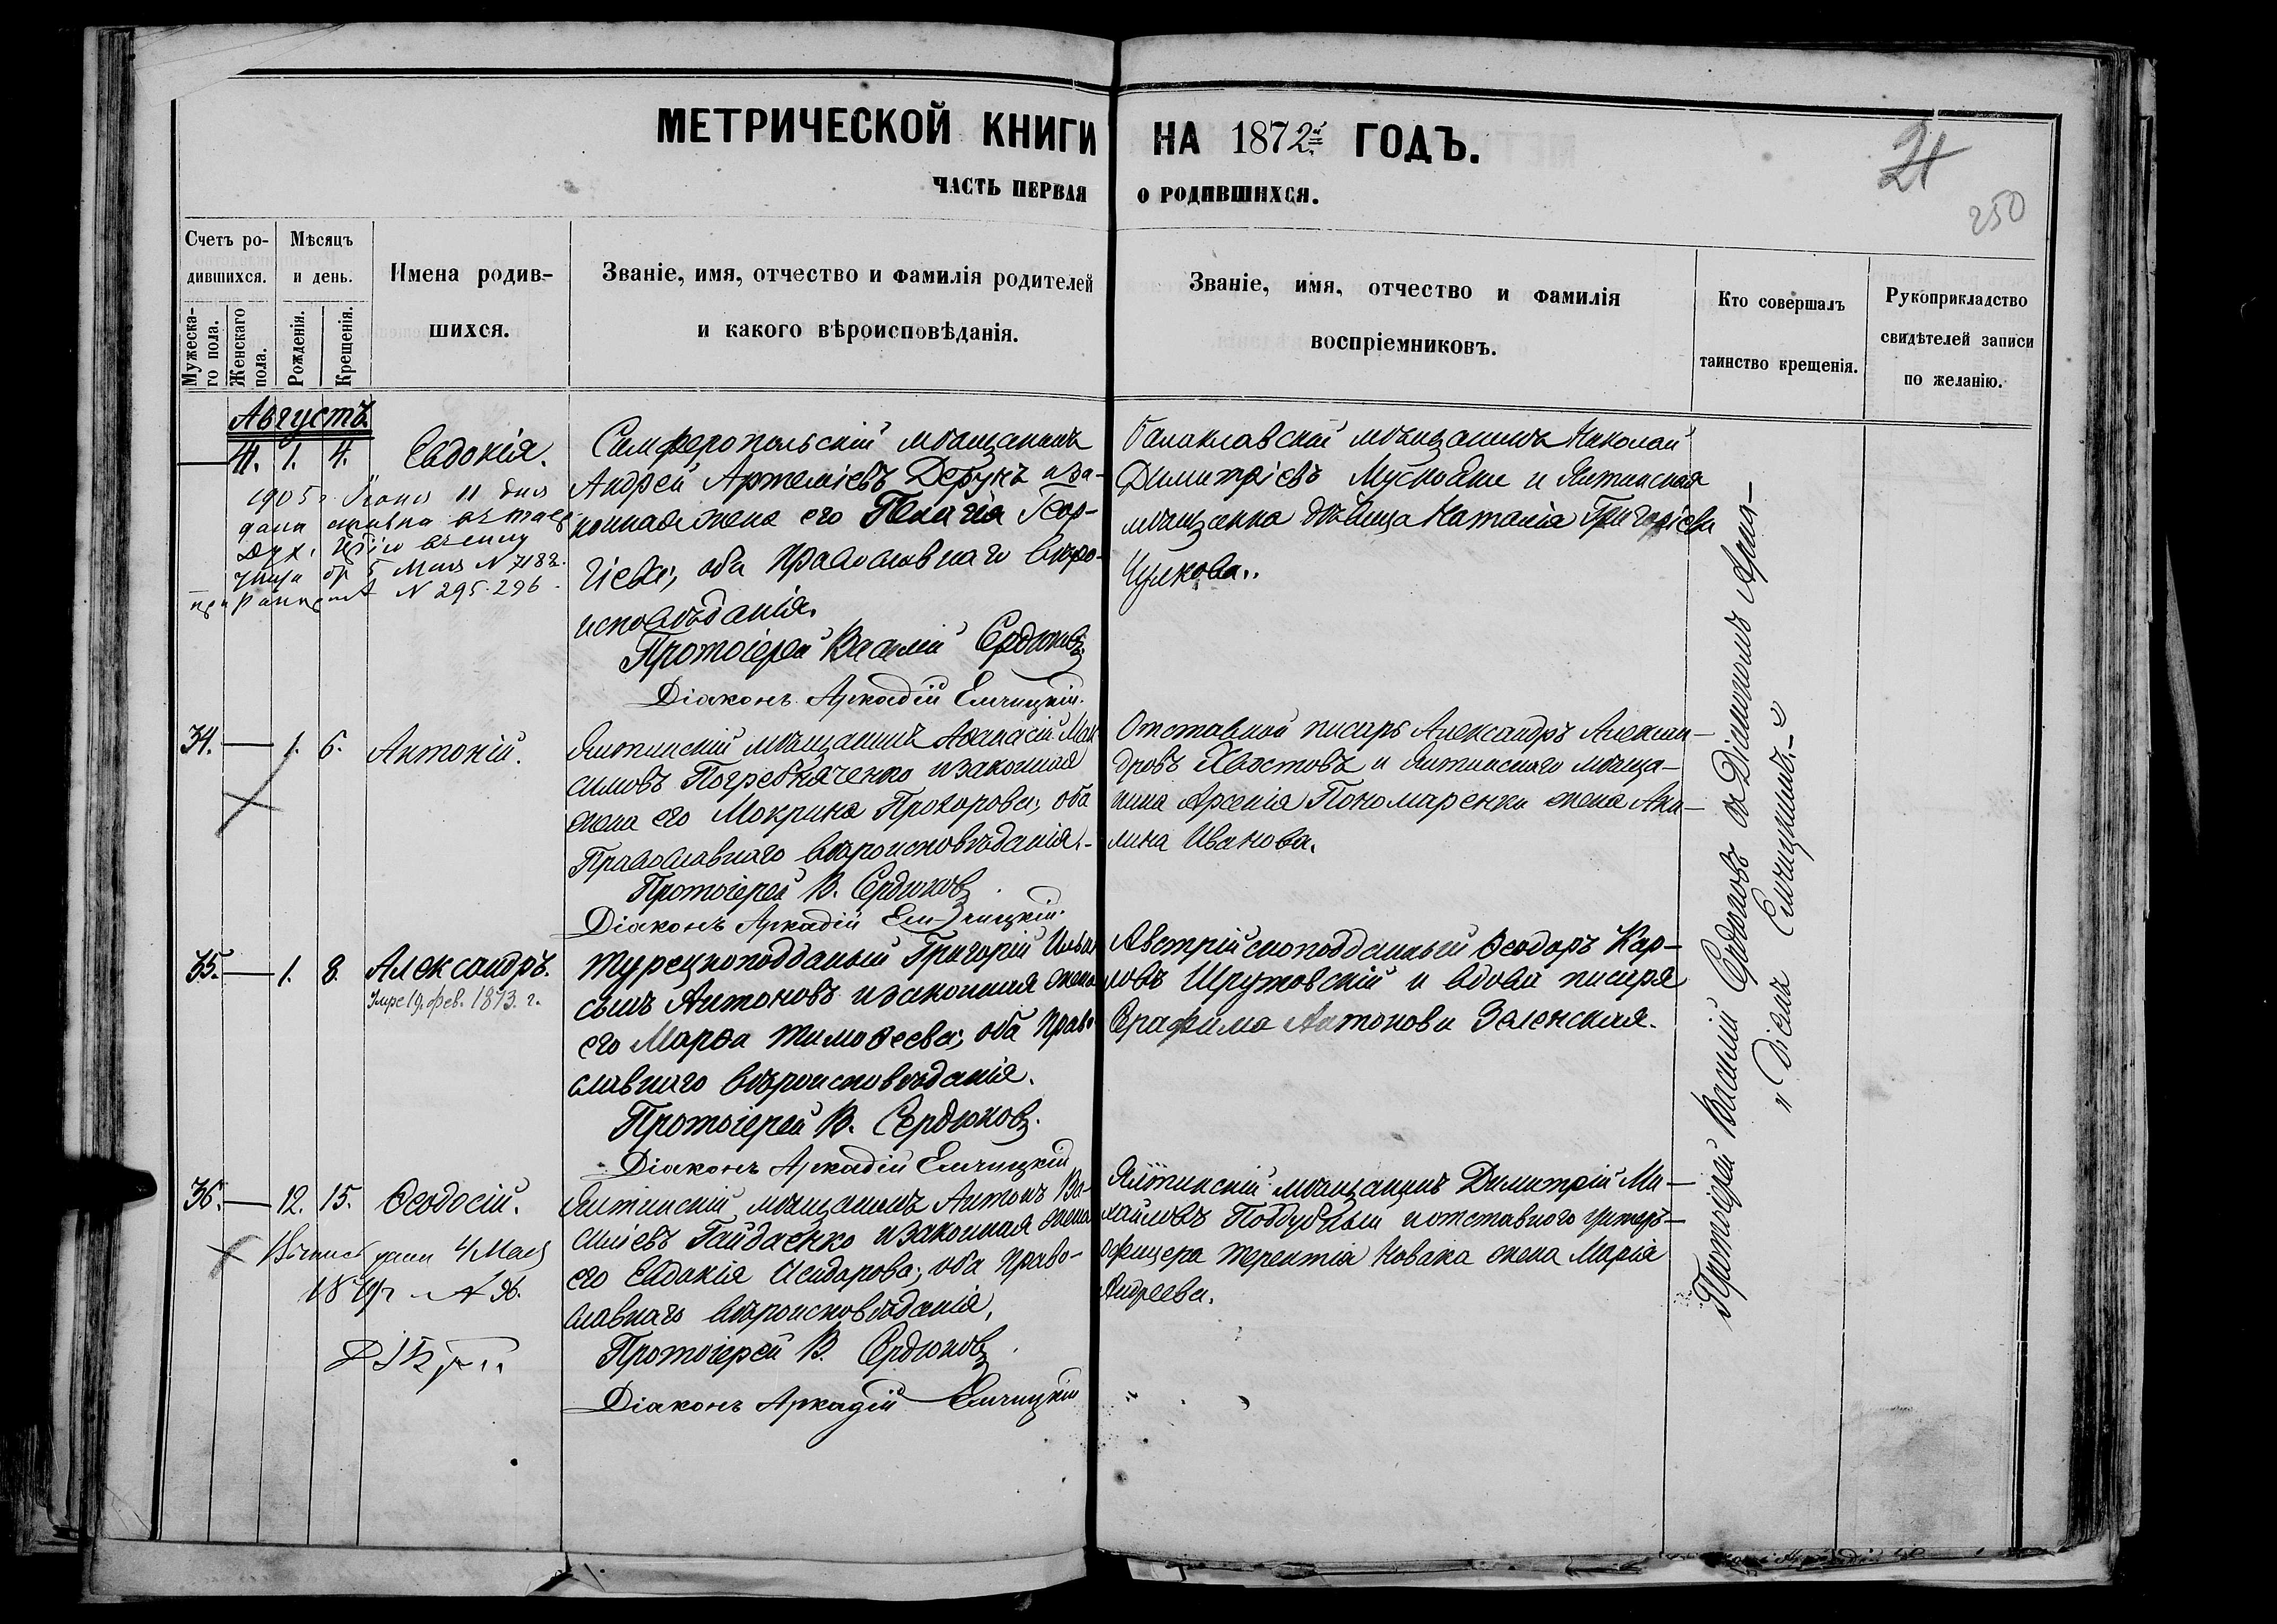 МЕТРИЧЕСКОЙ КНИГИ НА 1872й ГОДЪ.
ЧАСТЬ ПЕРВАЯ О РОДИВШИХСЯ.
21
250
Счетъ ро-
дившихся.
Мужеска-
го пола.
Женскаго
пола.
Мѣсяцъ
и день.
Рожденія.
Крещенія.
Имена родив-
шихся.
Званіе, имя, отчество и фамилія родителей
и какого вѣроисповѣданія.
Званіе, имя, отчество и фамилія
воспріемниковъ.
Кто совершалъ
таинство крещенія.
Рукоприкладство
свидѣтелей записи
по желанію.
Августъ
— 41. 1. 4. Евдокія.
1905 г. 11 дня
дана
5 Мая N 7182.
N 295-296
Симферопольскій мѣщанинъ
Андрей Артеміевъ Дерунъ и за-
конная жена его Пелагія Геор-
гіева; оба Православнаго вѣро-
исповѣданія.
Протоіерей Василій Сердюковъ
Діаконъ Аркадій Емчицкій.
Балаклавскій мѣщанинъ Николай
Димитріевъ и Ялтинская
мѣщанка дѣвица Наталія Григоріева
Чулкова.
34. — 1. 6. Антоній.
Ялтинскій мѣщанинъ Аѳанасій Мак
симовъ Погребняченко и законная
жена его Мокрина Прохорова; оба
Православнаго вѣроисповѣданія.
Протоіерей В. Сердюковъ
Діаконъ Аркадій Емчицкій.
Отставной писарь Александръ Алексан-
дровъ Хвостовъ и Ялтинскаго мѣща-
нина Арсенія Пономаренки жена Аку-
лина Иванова.
35. — 1. 8. Александръ.
Умре 19. фев. 1873. г.
Турецкоподданый Григорій
сынъ Антоновъ и законная жена
его Марѳа Тимоѳеева; оба Право
славнаго вѣроисповѣданія.
Протоіерей В. Сердюковъ.
Діаконъ Аркадій Емчицкій
Австрійскоподданный Ѳеодоръ Кар-
ловъ Шрутовскій и вдова писаря
Серафима Антонова Зеленская.
36. — 12. 15. Ѳеодосій.
дана 4 Мая
Ялтинскій мѣщанинъ Антонъ Ва-
силіевъ Гайдаенко и законная жена
его Евдокія Исидорова; оба Право-
славнаго вѣроисповѣданія.
Протоіерей В. Сердюковъ
Діаконъ Аркадій Емчицкій
Ялтинскій мѣщанинъ Димитрій Ми-
хайловъ Поддубный и отставного унтеръ-
офицера Терентія Новака жена Марія
Андреева.
Протоіерей Василій Сердюковъ съ Діакономъ Арка-
діемъ Емчицкимъ.